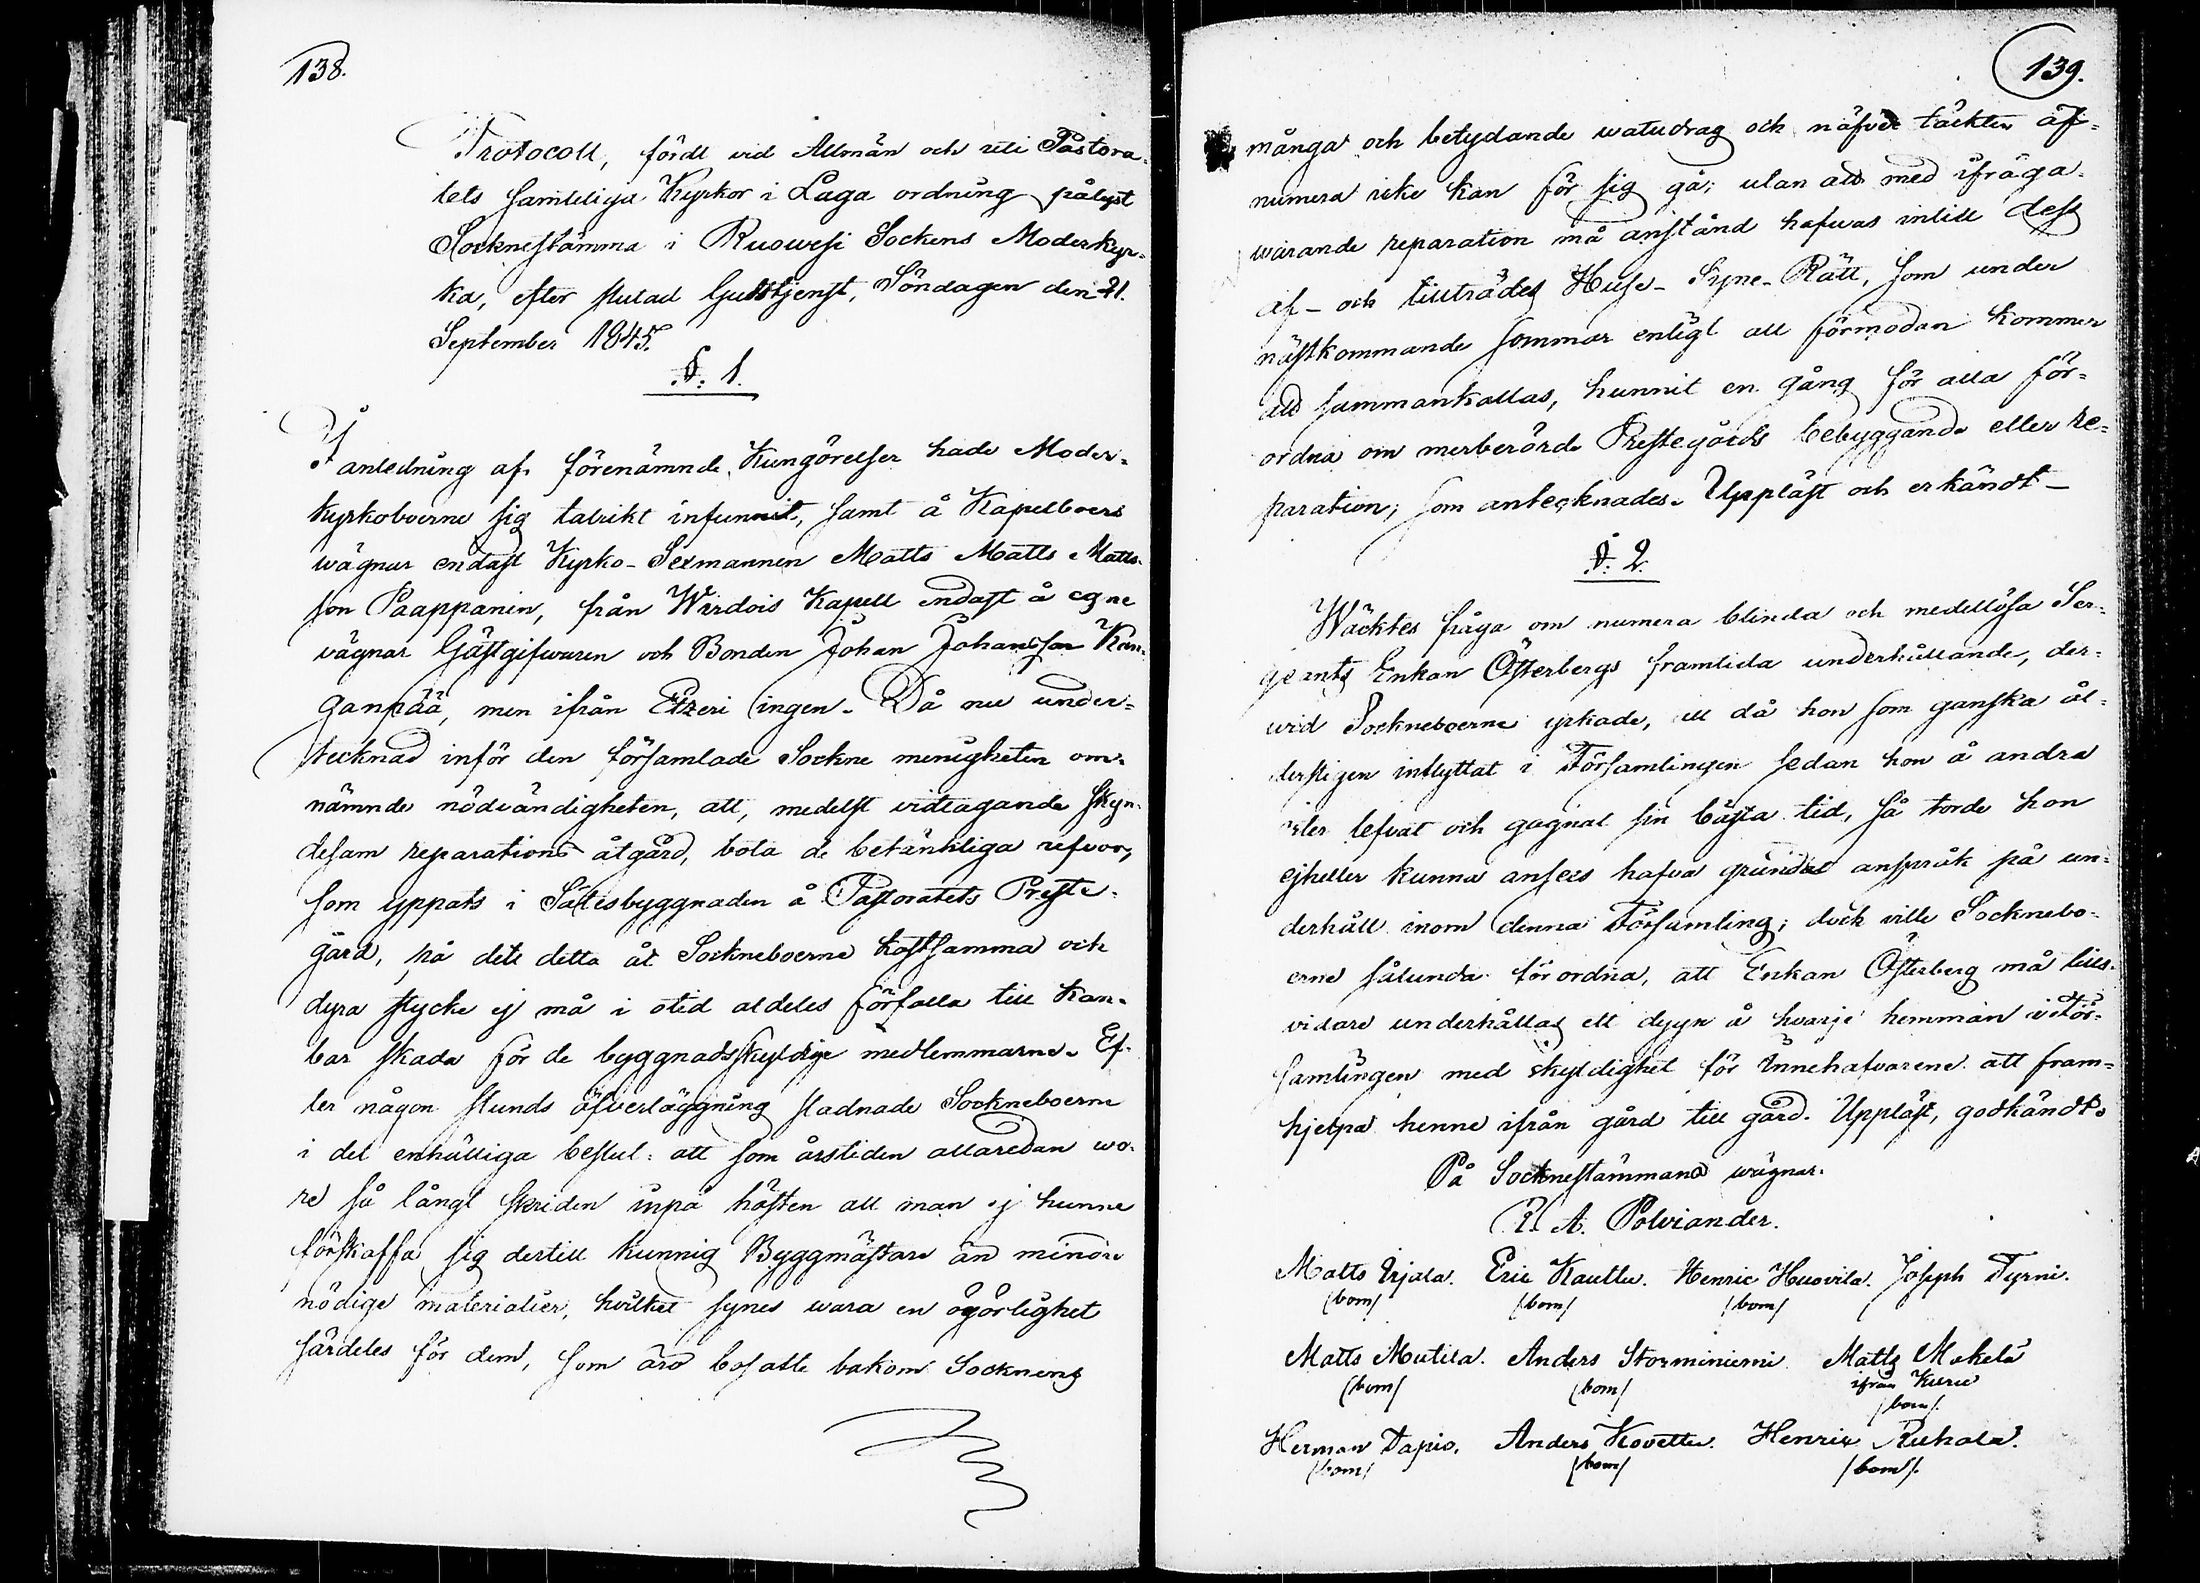 138.
Protocoll, fördt vid Allmän och uti Pastora-
tets samteliga Kyrkor i Laga ordning pålyst
Sockнestämma i Ruowesi Sockens Moderkyr-
ka, efter slutad Gudstjenst, Söndagen den 21.
September 1845.
§. 1.
I anledning af förenämnde Kungörelser hade Moder-
kyrkoboerne sig talrikt infunnit, samt å Kapellboers
wägnar endast Kyrko-Sexmannen Matts Matts Matts-
son Paappanen, från Wirdois Kapell endast å egne
vägnar Gästgifwaren och Bonden Johan Johansson Kan-
ganpää, men ifrån Etzeri ingen. Då nu under-
tecknad inför den församlade Sockne menigheten om-
nämnde nödvändigheten, att, medelst vidtagande skyn-
desam reparations åtgärd, bota de betänkliga refvor,
som yppats i Sätesbyggnaden å Pastoratets Preste-
gård, på det detta åt Sockneboerne kostsamma och
dyra stycke ej må i otid aldeles förfalla till kän-
bar skada för de byggnadsskyldige medlemmarne. Ef-
ter någon stunds öfverläggning stadnade Sockneboerne
i det enhälliga beslut: att som årstiden allaredan wo-
re så långt skriden inpå hösten att man ej hunne
förskaffa sig dertill kunnig Byggmästare än mindre
nödige materialier, hvilket synes wara en ogörlighet
särdeles för dem, som äro bosatte bakom Socknens
139.
många och betydande watudrag och näfver täckten af-
numera icke kan för sig gå; utan att med ifråga-
warande reparation må anstånd hafwas intill dess
af- och tillträdes Huse-Syne-Rätt, som under
nästkommande sommar enligt all förmodan kommer
att sammankallas, hunnit en gång för alla för-
ordna om merberörde Prestegårds bebyggande eller re-
paration; som antecknades. Uppläst och erkändt_
§. 2.
Wäcktes fråga om numera blinda och medellösa Ser-
geants Enkan Österbergs framtida underhållande, der-
wid Sockneboerne yrkade, att då hon som ganska ål-
derstigen inflyttat i Församlingen sedan hon å andra
orter lefvat och gagnat sin bästa tid, så torde hon
ejheller kunna anses hafva grundat anspråk på un-
derhåll inom denna Församling; dock ville Sockнebo-
erne sålunda förordna, att Enkan Österberg må tills-
vidare underhållas ett dygn å hvarje hemman i För-
samlingen med skyldighet för Innehafvarene att fram-
hjelpa henne ifrån gård till gård. Uppläst, godkändt.
På Socknestämmans wägnar.
R. A. Polviander.
Matts Yrjala. Eric Kauttu. Henric Huovila. Joseph Tyrni.
/bom/ /bom/ /bom/
Matts Mutila. Anders Storminiemi Matts Mäkelä
/bom/ /bom/ ifrån Kuru
/bom/.
Herman Tapio. Anders Kovettu. Henrik Ruhala.
/bom/ /bom/ /bom/.